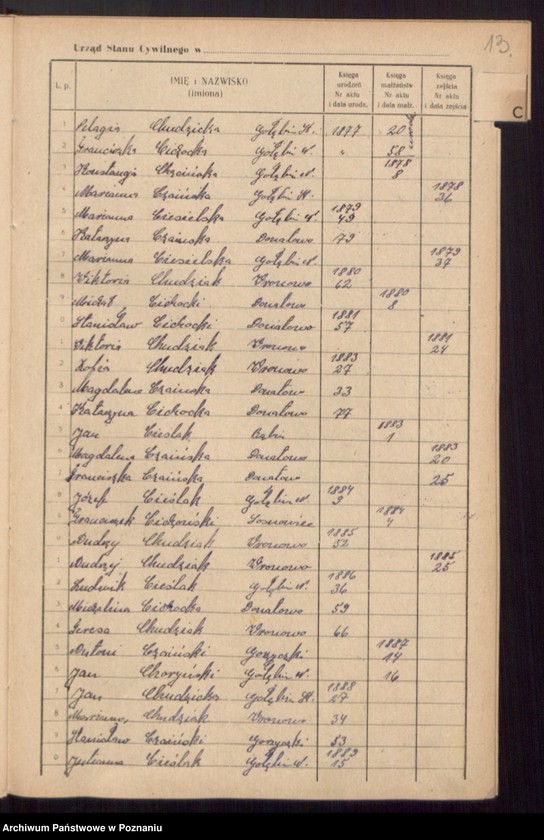 13.
Urząd Stanu Cywilnego w
L. p. IMIĘ i NAZWISKO (imiona) Księga urodzeń Nr aktu i data urodz. Księga małżeństw Nr aktu i data małż. Księga zejścia Nr aktu i data zejścia
C
1 Pelagia Chudzicka Gołębin St. 1877 20
2 Franciszka Cichocka Gołębin N. " 58
3 Konstancja Czaińska Gołębin N. 1878 8
4 Marianna Czaińska Gołębin St. 1878 36
5 Marianna Ciesielska Gołębin N. 1879 49
6 Katarzyna Czaińska Donatowo 79
7 Marianna Ciesielska Gołębin N. 1879 37
8 Wiktoria Chudziak Wronowo 1880 62
9 Michał Cichocki Donatowo 1880 8
0 Stanisław Cichocki Donatowo 1881 57
1 Wiktoria Chudziak Wronowo 1881 24
2 Zofia Chudziak Wronowo 1883 27
3 Magdalena Czaińska Donatowo 33
4 Katarzyna Cichocka Donatowo 77
5 Jan Cieślak 1883 1
6 Magdalena Czaińska Donatowo 1883 20
7 Franciszka Czaińska Donatowo 25
8 Józef Cieślak Gołębin N. 1884 9
9 Franciszek Cichoński Sosnowiec 1884 4
0 Andrzej Chudziak Wronowo 1885 52
1 Andrzej Chudziak Wronowo 1885 25
2 Ludwik Cieślak Gołębin N. 1886 36
3 Michalina Cichocka Donatowo 59
4 Teresa Chudziak Wronowo 66
5 Antoni Czaiński Gorzyczki 1887 14
6 Jan Choryński Gołębin N. 16
7 Jan Chudzicki Gołębin St. 1888 27
8 Marianna Chudziak Wronowo 34
9 Stanisław Czaiński Gorzyczki 53
0 Julianna Cieślak Gołębin N. 1889 15
Archiwum Państwowe w Poznaniu